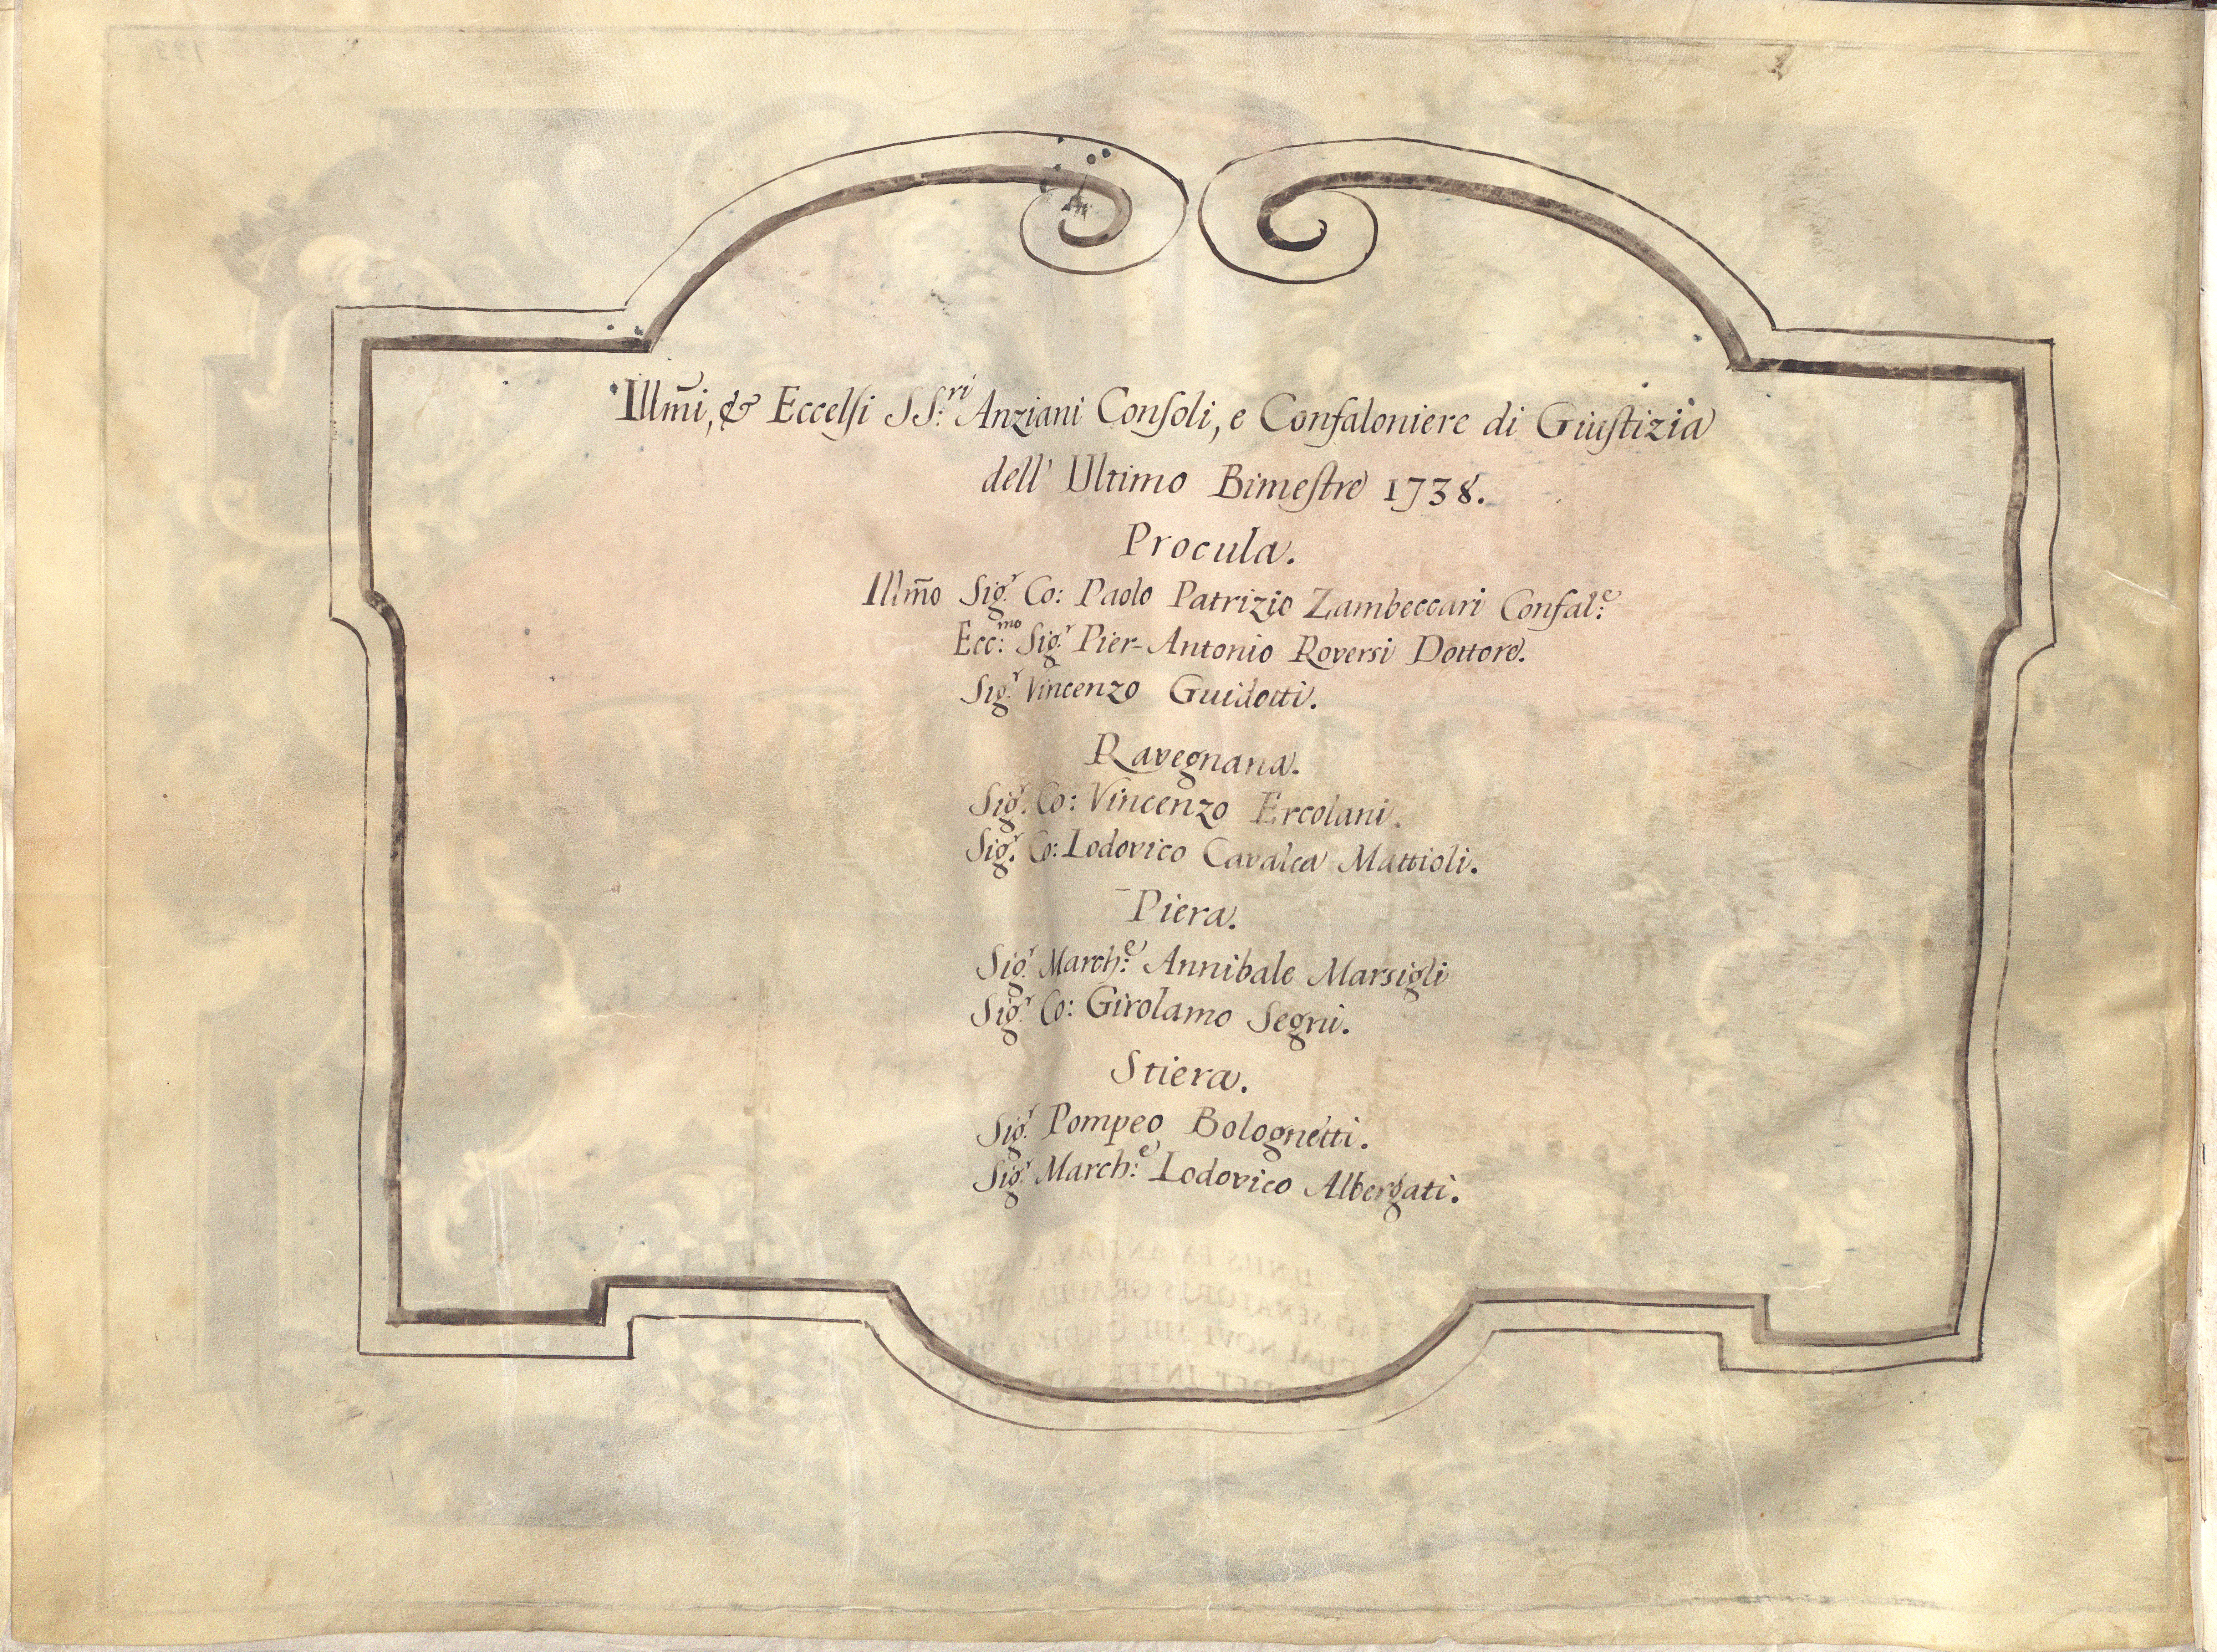 Illm̃i, & Eccelsi SS.ri Anziani Consoli, e Confaloniere di Giustizia
dell' Ultimo Bimestre 1738.
Procula.
Illm̃o Sig.r Co: Paolo Patrizio Zambeccari Confal:e
Ecc:mo Sig.r Pier-Antonio Roversi Dottore.
Sig.r Vincenzo Guidotti.
Ravegnana.
Sig.r Co: Vincenzo Ercolani.
Sig.r Co: Lodovico Cavalca Mattioli.
Piera.
Sig.r March:e Annibale Marsigli
Sig.r Co: Girolamo Segni.
Stiera.
Sig.r Pompeo Bolognetti.
Sig.r March:e Lodovico Albergati.